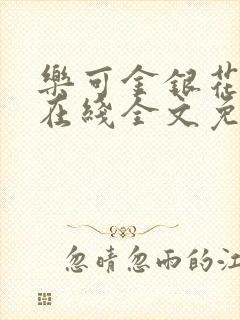 樂可金銀花
在綫全文免
忽晴忽雨的江